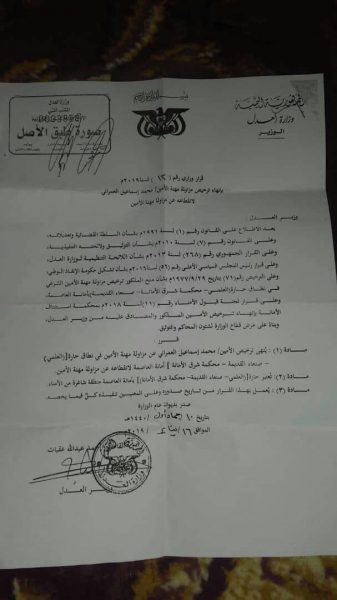 الجمهورية اليمنية
وزارة العدل
الوزير
وزارة العدل
صورة طبق الأصل
قرار وزاري رقم (١٣) لسنة ٢٠١٩م
بإنهاء ترخيص مزاولة مهنة الأمين/ محمد إسماعيل العمراني
لانقطاعه عن مزاولة مهنة الأمين
وزير العدل:
بعد الاطلاع على القانون رقم (١) لسنة ١٩٩١م بشأن السلطة القضائية وتعديلاته.
وعلى القانون رقم (٧) لسنة ٢٠١٠م بشأن التوثيق ولائحته التنفيذية.
وعلى القرار الجمهوري رقم (٢٦٨) لسنة ٢٠١٣م بشأن اللائحة التنظيمية لوزارة العدل.
وعلى قرار رئيس المجلس السياسي الأعلى رقم (٥٦) لسنة ٢٠١٦م بشأن تشكيل حكومة الإنقاذ الوطني.
وعلى الترخيص رقم (٧١) بتاريخ ١٩٧٧/٩/٢٩م بشأن منح المذكور ترخيص مزاولة مهنة الأمين الشرعي
في نطاق حارة/ العلمي – محكمة شرق الأمانة – صنعاء القديمة بأمانة العاصمة.
وعلى قرار لجنة قبول الأمناء رقم (١١) لسنة ٢٠١٨م بمحكمة استئناف
الأمانة بإنهاء ترخيص الأمين المذكور والمصادق عليه من وزير العدل.
وبناءً على عرض قطاع الوزارة لشئون المحاكم والتوثيق.
قرر
مادة (١): يُنهى ترخيص الأمين/ محمد إسماعيل العمراني عن مزاولة مهنة الأمين في نطاق حارة/ (العلمي)
– صنعاء القديمة – محكمة شرق الأمانة] أمانة العاصمة لانقطاعه عن مزاولة مهنة الأمين.
مادة (٢): تُعتبر حارة/ (العلمي – صنعاء القديمة – محكمة شرق الأمانة) بأمانة العاصمة منطقة شاغرة من الأمناء.
مادة (٣): يُعمل بهذا القرار من تاريخ صدوره وعلى المعنيين تنفيذه كلٌ فيما يخصه.
صدر بديوان عام الوزارة
بتاريخ ١٠/ جماد أول/١٤٤٠هـ
الموافق ١٦/ يناير/٢٠١٩م
عبدالله عقبات
وزير العدل